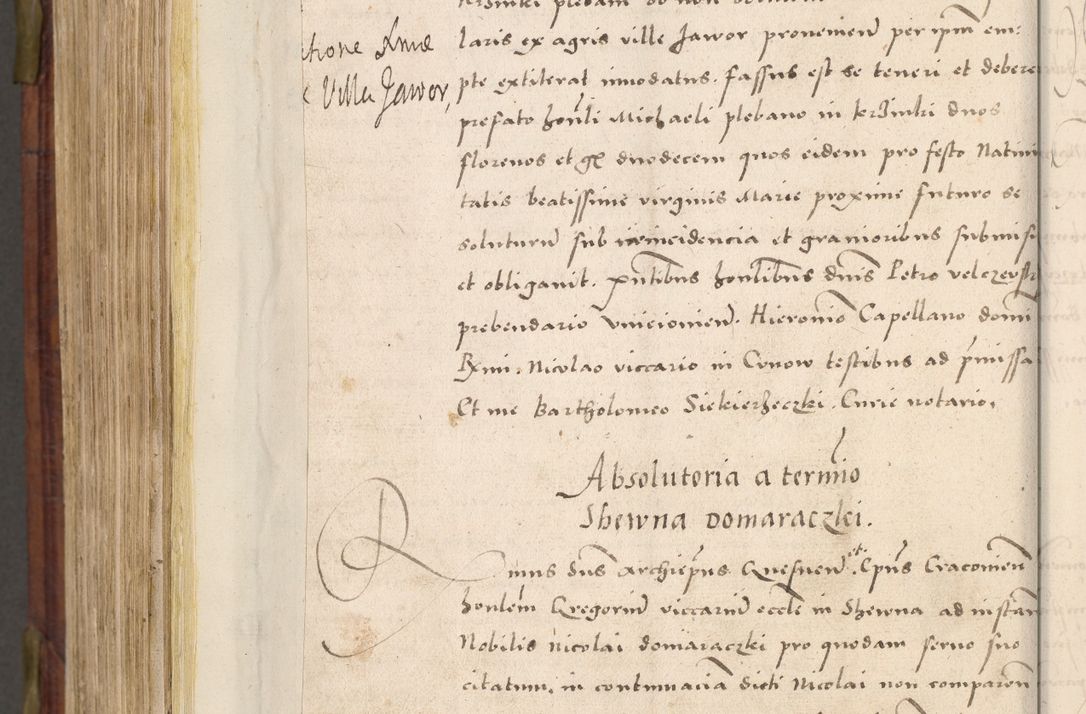 laris ex agris ville Jawor provenien per ipm em
pte extiterat inmodatus. fassus est se teneri et debere
prefato honli Michaeli plebano in duos
florenos et gr duodecem quos eidem pro festo Nativi
tatis beatissime virginis Marie proxime futuro se
soluturu sub reincidencia et gravioribus submisi
et obligavit. pntibus honlibus dnis Petro
prebendario Hieronimo Capellano domi
Rxmi. Nicolao viccario in Conow testibus ad pmissa
Et me Bartholomeo Siekierzeczki. Curie notario.
Villa Jawor,
Absolutoria a termio
Shewna domaraczki.
Rmus dns Archieps Gnesnen et. Eps Cracovien
honlem Gregoriu viccariu eccle in Shewna ad instan
Nobilis nicolai domaraczki pro quodam servo suo
citatum, in contumacia dicti Nicolai non comparen